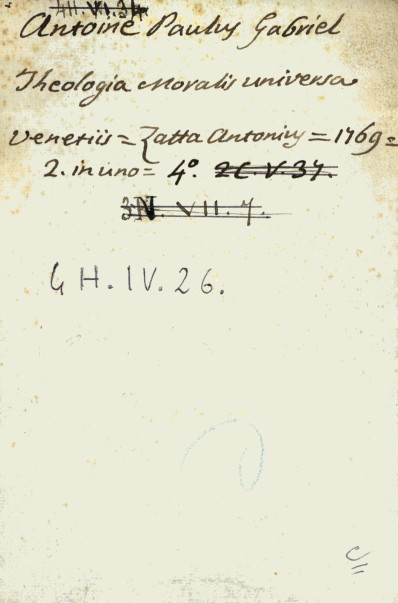 Antoine Paulus Gabriel
Theologia Moralis universa
Venetiis = Zatta Antonius = 1769 =
2. in uno = 4º. 2C.V.37.
3N. VII. 7.
4 H. IV. 26.